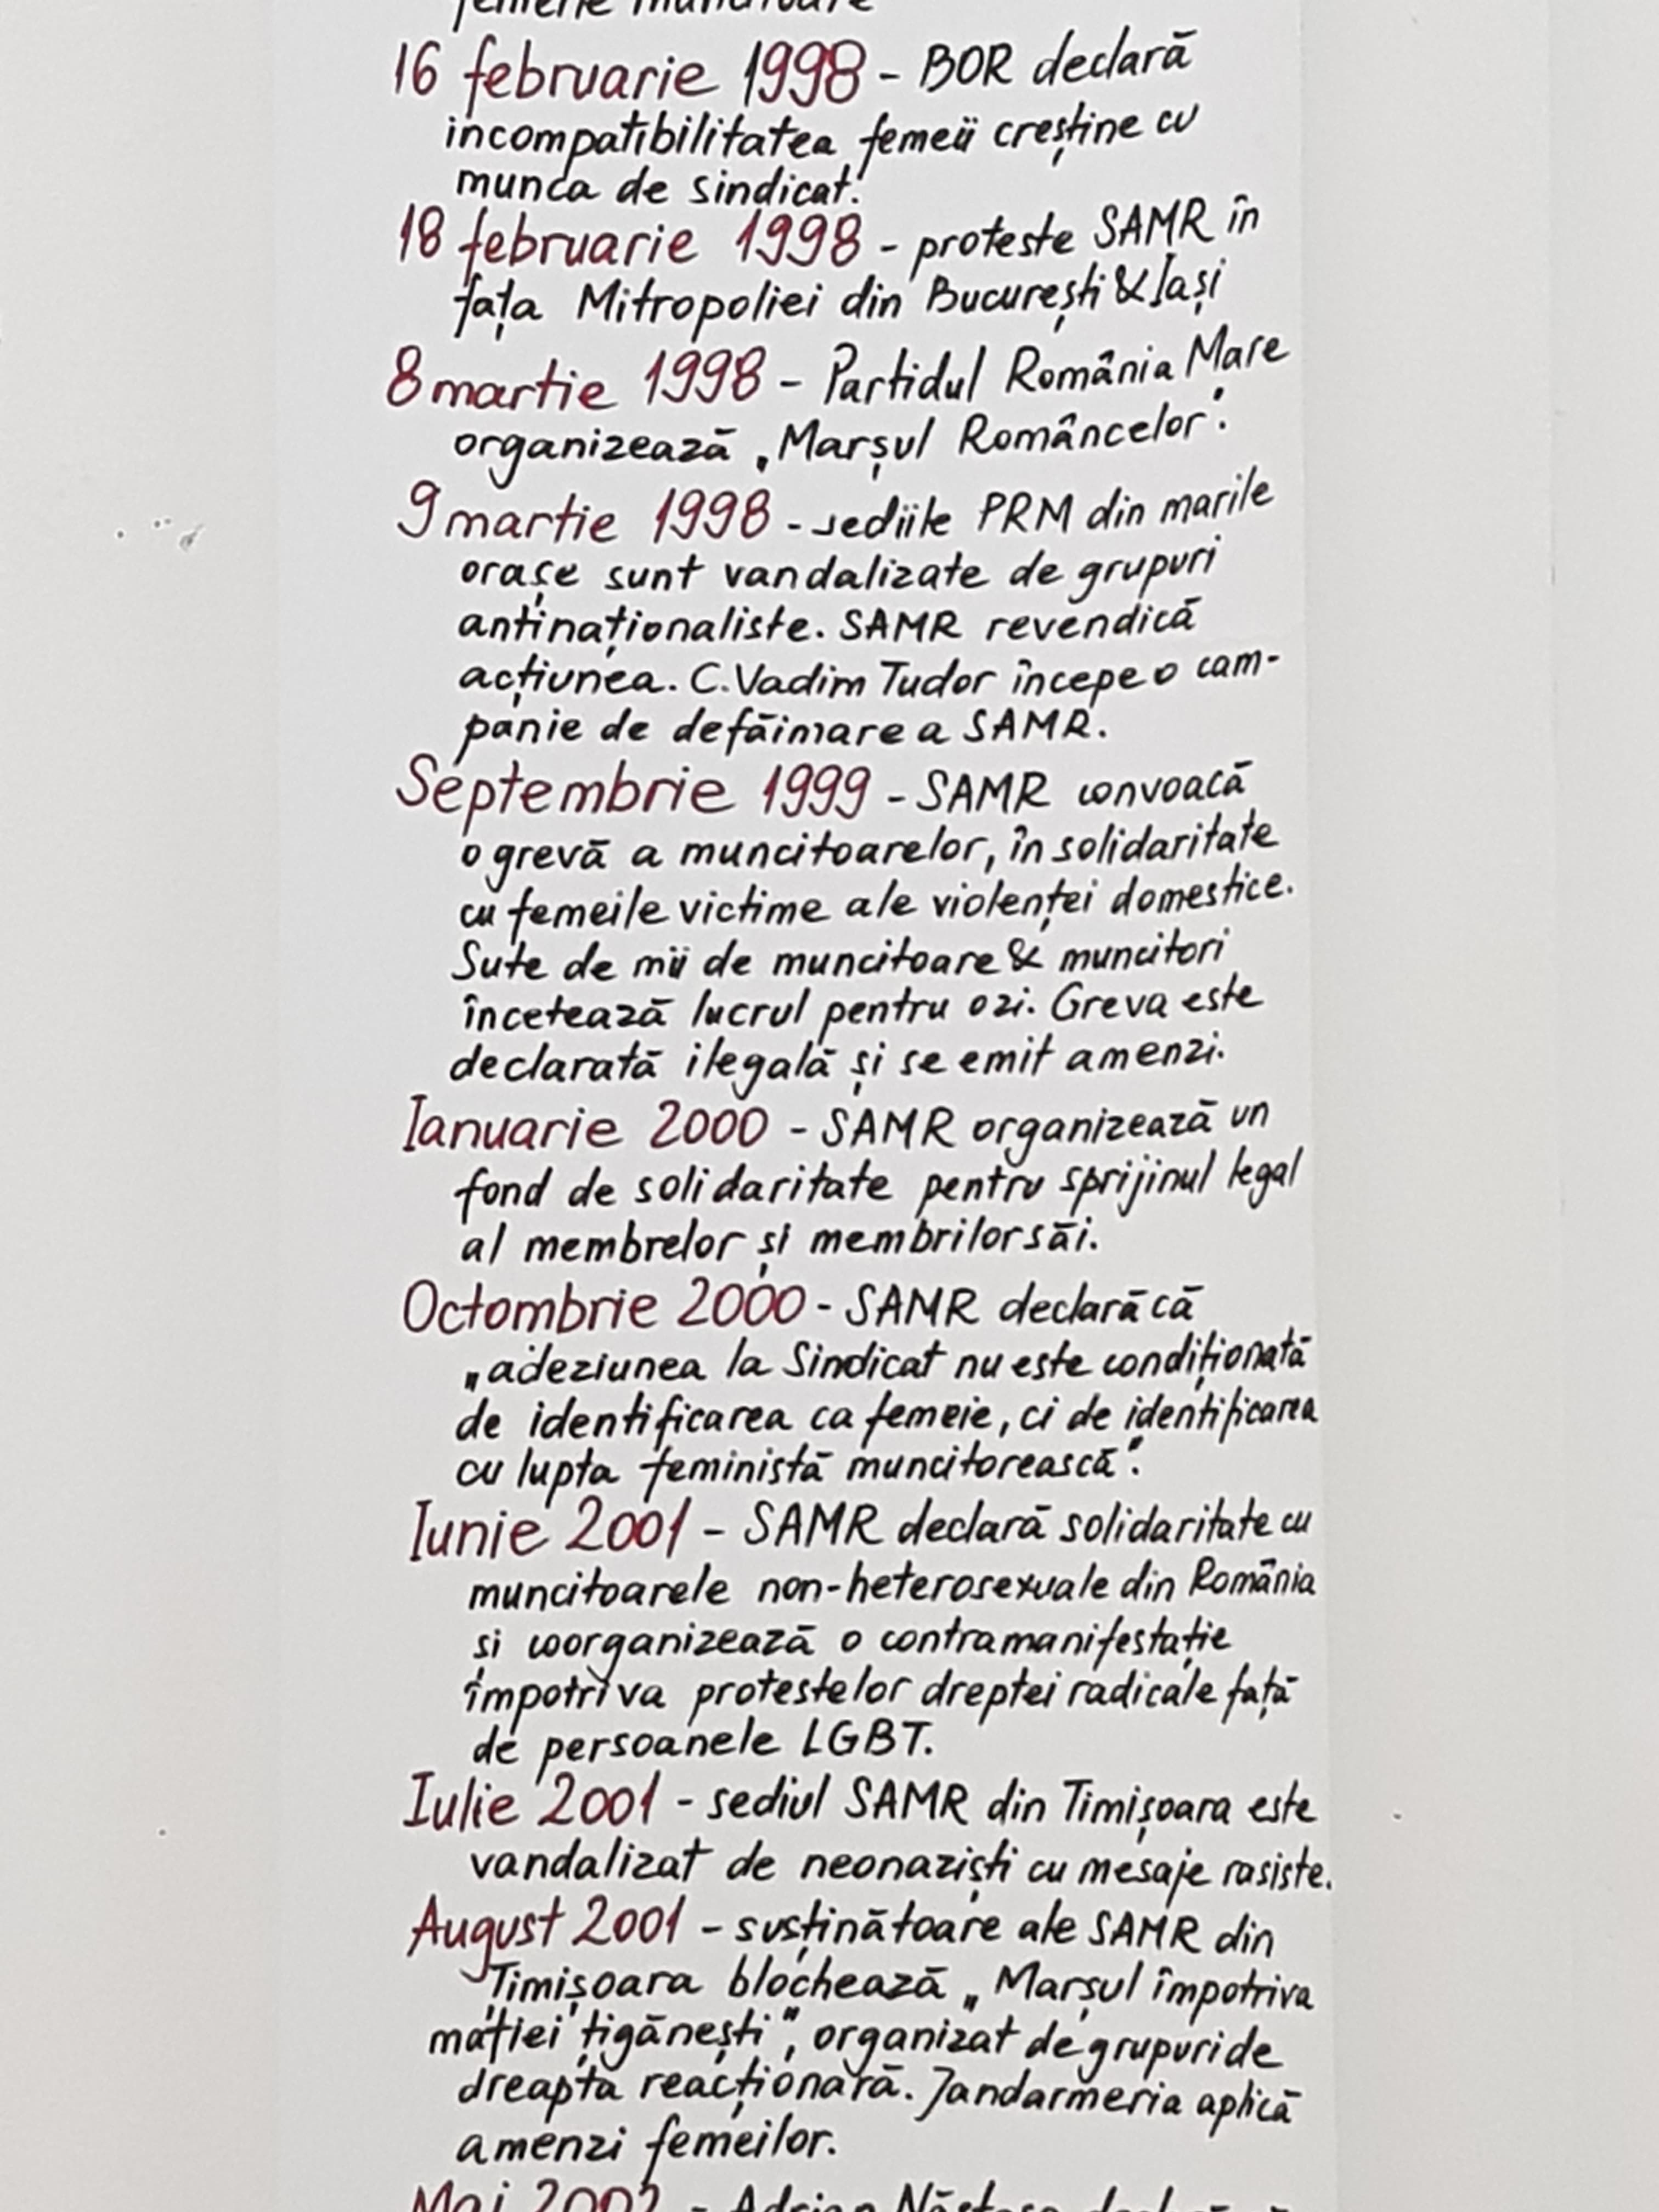 16 februarie 1998 - BOR declară
incompatibilitatea femeii creștine cu
munca de sindicat.
18 februarie 1998 - proteste SAMR în
fața Mitropoliei din București & Iași
8 martie 1998 - Partidul România Mare
organizează „Marșul Româncelor".
9 martie 1998 - sediile PRM din marile
orașe sunt vandalizate de grupuri
antinaționaliste. SAMR revendică
acțiunea. C. Vadim Tudor începe o cam-
panie de defăimare a SAMR.
Septembrie 1999 - SAMR convoacă
o grevă a muncitoarelor, în solidaritate
cu femeile victime ale violenței domestice.
Sute de mii de muncitoare & muncitori
încetează lucrul pentru o zi. Greva este
declarată ilegală și se emit amenzi.
Ianuarie 2000 - SAMR organizează un
fond de solidaritate pentru sprijinul legal
al membrelor și membrilor săi.
Octombrie 2000 - SAMR declară că
„adeziunea la Sindicat nu este condiționată
de identificarea ca femeie, ci de identificarea
cu lupta feministă muncitorească".
Iunie 2001 - SAMR declară solidaritate cu
muncitoarele non-heterosexuale din România
și coorganizează o contramanifestație
împotriva protestelor dreptei radicale față
de persoanele LGBT.
Iulie 2001 - sediul SAMR din Timișoara este
vandalizat de neonaziști cu mesaje rasiste.
August 2001 - susținătoare ale SAMR din
Timișoara blochează „Marșul împotriva
mafiei țigănești", organizat de grupuri de
dreapta reacționară. Jandarmeria aplică
amenzi femeilor.
Mai 2002 - Adrian Năstase